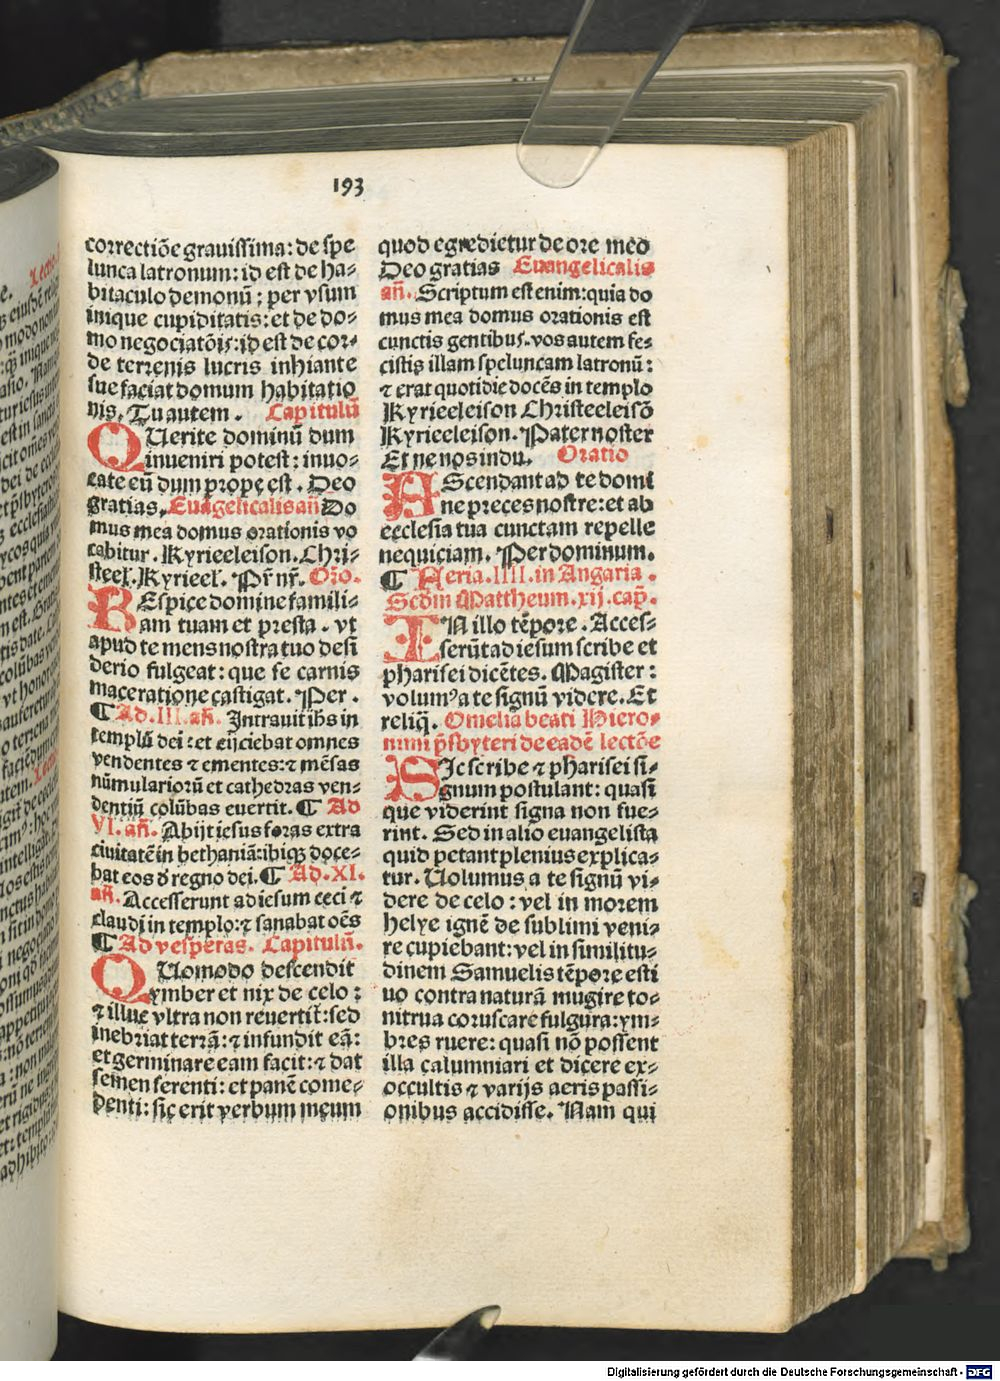 193
correctiõe grauissima: de spe
lunca latronum: id est de ha⸗
bitaculo demonũ: per vsum
inique cupiditatis: et de do⸗
mo negociatõis: id est de cor⸗
de terrenis lucris inhiante
sue faciat domum habitatio
nis. Tu autem. Capitulũ
QUerite dominũ dum
inueniri potest: inuo⸗
cate eũ dum prope est. Deo
gratias. Euãgelicalis añ Do
mus mea domus orationis vo
cabitur. Kyrieeleison. Chri⸗
steel. Kyrieel. Pr̃ nr̃. Orõ.
REspice domine famili⸗
am tuam et presta. vt
apud te mens nostra tuo desi
derio fulgeat: que se carnis
maceratione castigat. Per.
¶ Ad. III. añ. Intrauit ihs in
templũ dei: et eijciebat omnes
vendentes ⁊ ementes: ⁊ mẽsas
nũmulariorũ et cathedras ven⸗
dentiũ colũbas euertit. ¶ Ad
VI. añ. Abijt iesus foras extra
ciuitatẽ in bethaniã: ibiqꝫ doce⸗
bat eos d̓ regno dei. ¶ Ad. XI.
añ. Accesserunt ad iesum ceci ⁊
claudi in templo: ⁊ sanabat oẽs
¶ Ad vesperas. Capitulũ.
QUomodo descendit
ymber et nix de celo:
⁊ illuc vltra non reuertit̃: sed
inebriat terrã: ⁊ infundit eã:
et germinare eam facit: ⁊ dat
semen serenti: et panẽ come⸗
denti: sic erit verbum meum
quod egredietur de ore meo
Deo gratias Euangelicalis
añ. Scriptum est enim: quia do
mus mea domus orationis est
cunctis gentibus. vos autem fe⸗
cistis illam speluncam latronũ:
⁊ erat quotidie docẽs in templo
Kyrieeleison Christeeleisõ
Kyrieeleison. Pater noster
Et ne nos indu. Oratio
AScendant ad te domi
ne preces nostre: et ab
ecclesia tua cunctam repelle
nequiciam. Per dominum.
¶ Feria. IIII. in Angaria.
Scdm Mattheum. xij. cap̃.
IN illo tẽpore. Acces⸗
serũt ad iesum scribe et
pharisei dicẽtes. Magister:
volumꝰ a te signũ videre. Et
reliq̃. Omelia beati Hiero⸗
nimi p̃sbyteri de eadẽ lectõe
SIc scribe ⁊ pharisei si⸗
gnum postulant: quasi
que viderint signa non fue⸗
rint. Sed in alio euangelista
quid petant plenius explica⸗
tur. Uolumus a te signũ vi⸗
dere de celo: vel in morem
helye ignẽ de sublimi veni⸗
re cupiebant: vel in similitu⸗
dinem Samuelis tẽpore esti
uo contra naturã mugire to⸗
nitrua coruscare fulgura: ym⸗
bres ruere: quasi nõ possent
illa calumniari et dicere ex⸗
occultis ⁊ varijs aeris passi⸗
onibus accidisse. Nam qui
Digitalisierung gefördert durch die Deutsche Forschungsgemeinschaft - DFG